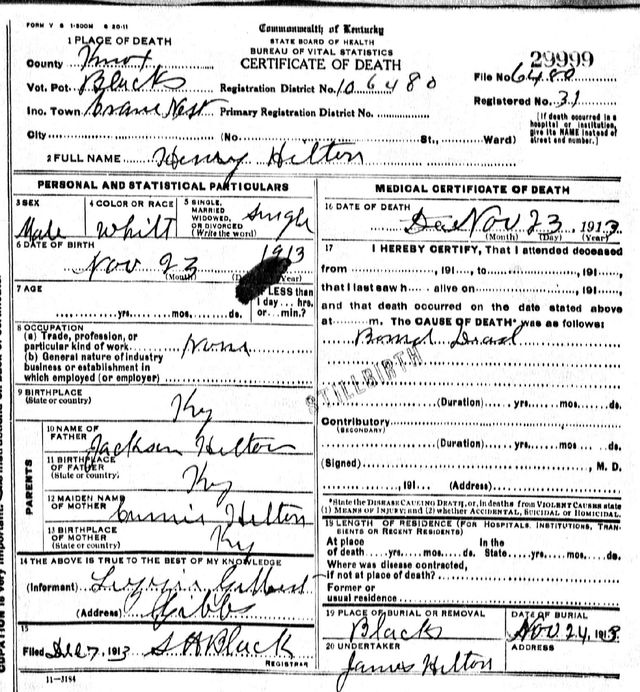 FORM V S 1-500M 6 20-11
Commonwealth of Kentucky
STATE BOARD OF HEALTH
BUREAU OF VITAL STATISTICS
CERTIFICATE OF DEATH
1 PLACE OF DEATH
County Knox
Vot. Pct. Blacks
Registration District No. 106480
29999
File No. 6480
Inc. Town Crane Nest
Primary Registration District No.
Registered No. 31
City (No. St., Ward)
[If death occurred in a hospital or institution, give its NAME instead of street and number.]
2 FULL NAME Henry Hilton
PERSONAL AND STATISTICAL PARTICULARS
3 SEX
Male
4 COLOR OR RACE
Whilt
5 SINGLE, MARRIED WIDOWED, OR DIVORCED (Write the word)
Single
6 DATE OF BIRTH
Nov 23 1913
(Month) (Year)
7 AGE
yrs. mos. ds.
If LESS than 1 day hrs. or min.?
8 OCCUPATION
(a) Trade, profession, or
particular kind of work None
(b) General nature of industry
business or establishment in
which employed (or employer)
9 BIRTHPLACE
(State or country) Ky
PARENTS
10 NAME OF FATHER Jackson Hilton
11 BIRTHPLACE OF FATHER
(State or country) Ky
12 MAIDEN NAME OF MOTHER Hilton
13 BIRTHPLACE OF MOTHER
(State or country) Ky
14 THE ABOVE IS TRUE TO THE BEST OF MY KNOWLEDGE
(Informant)
(Address) Gibbs
15
Filed Dec 7, 1913 S H Black
REGISTRAR
11-3184
MEDICAL CERTIFICATE OF DEATH
16 DATE OF DEATH
Nov 23 1913
(Month) (Day) (Year)
17 I HEREBY CERTIFY, That I attended deceased
from 191 , to 191 ,
that I last saw h alive on 191 ,
and that death occurred on the date stated above
at m. The CAUSE OF DEATH* was as follows:
Born Dead
STILLBIRTH
(Duration) yrs. mos. ds.
Contributory
(SECONDARY)
(Duration) yrs. mos. ds.
(Signed) , M. D.
191 (Address)
*State the DISEASE CAUSING DEATH, or, in deaths from VIOLENT CAUSES state
(1) MEANS OF INJURY; and (2) whether ACCIDENTAL, SUICIDAL or HOMICIDAL.
18 LENGTH OF RESIDENCE (FOR HOSPITALS, INSTITUTIONS, TRANSIENTS OR RECENT RESIDENTS)
At place of death yrs. mos. ds. In the State yrs. mos. ds.
Where was disease contracted,
if not at place of death?
Former or
usual residence
19 PLACE OF BURIAL OR REMOVAL
Blacks
DATE OF BURIAL
Nov 24, 1913
20 UNDERTAKER
James Hilton
ADDRESS